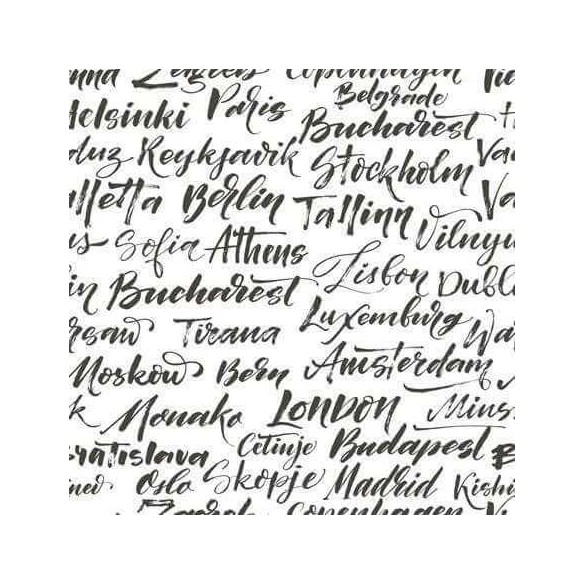 Zagreb Copenhagen
Helsinki Paris Belgrade
Bucharest
Reykjavik Stockholm
lletta Berlin Tallinn
Sofia Athens Vilnyu
in Bucharest Lisbon Dubl
rsaw Tirana Luxemburg Wa
Moskow Bern Amsterdam
k Monako LONDON Mins
ratislava Cetinje Budapest B
Oslo Skopje Madrid Kishi
Zagreb Copenhagen